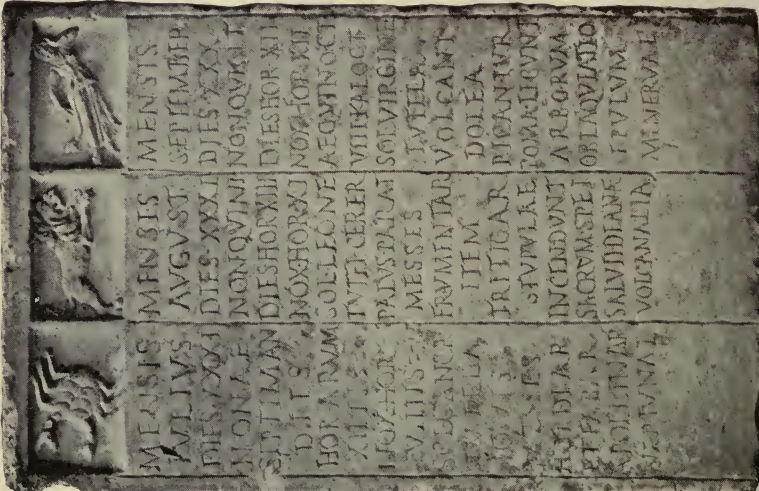 MENSIS
IVLIVS
DIES·XXXI
NONAE
SEPTIMAN
DIES
HORARVM
XIIII
NOX·HOR
VIIIIS
SOL CANCR
TVTELA
HORDIAR
ET FABAR
APOLLINAR
NEPTVNAL
MENSIS
AVGVST
DIES·XXXI
NONQVINT
DIESHORXIII
NOX·HOR·XI
SOL·LEONE
TVTEL·CERER
PALVSPARAT
MESSES
FRVMENTAR
ITEM
TRITICAR
STVPVLAE
INCENDVNT
SACRVMSPEI
SALVTIDIANAE
VOLCANALIA
MENSIS
SEPTEMBER
DIES·XXX
NONQVINT
DIESHOR·XII
NOX·HOR·XII
AEQVINOCT
VIIIKALOCT
SOLVIRGINE
TVTELA
VOLCANI
DOLEA
PICANTVR
POMALEGVNT
ARBORVM
OBLAQVIATIO
EPVLVM
MINERVAE